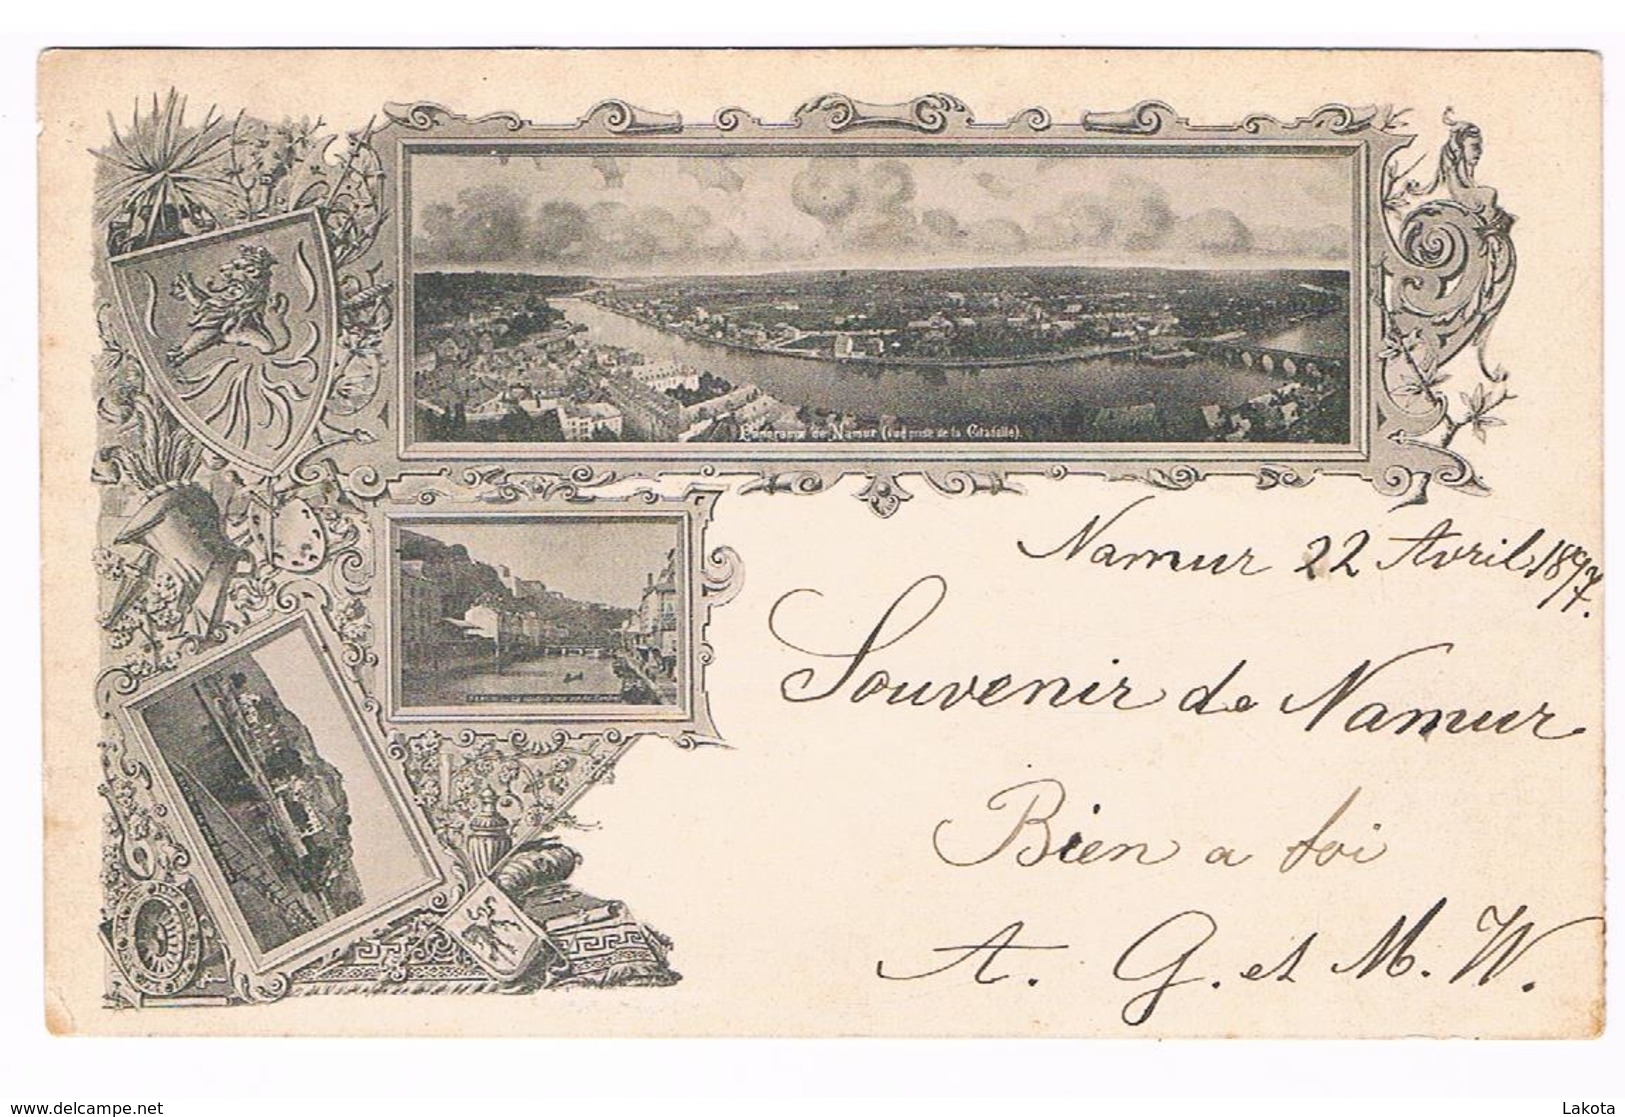 Panorama de Namur (vue prise de la Citadelle).
Namur 22 Avril 1897.
Souvenir de Namur
Bien a toi
A. G. et M. W.
www.delcampe.net
Lakota